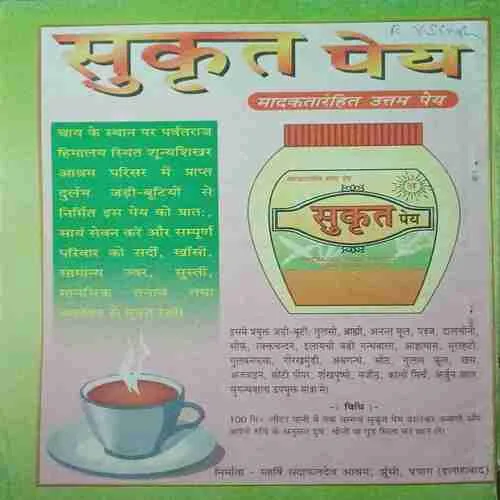 सुकृत पेय
मादकतारहित उत्तम पेय
चाय के स्थान पर पर्वतराज
हिमालय स्थित शून्यशिखर
आश्रम परिसर में प्राप्त
दुर्लभ जड़ी-बुटियों से
निर्मित इस पेय को प्रातः,
सायं सेवन करें और सम्पूर्ण
परिवार को सर्दी, खाँसी,
सामान्य ज्वर, सुस्ती,
मानसिक तनाव तथा
से मुक्त रखें।
सुकृत पेय
इसमें प्रयुक्त जड़ी-बूटी: तुलसी, ब्राह्मी, अनन्त मूल, दालचीनी,
सौंफ, रक्तचन्दन, इलायची बड़ी
गोरखमुंडी, अश्वगंधा, सोंठ, गुलाब फूल, खस,
अजवाइन, छोटी पीपर, शंखपुष्पी, मजीठ, काली मिर्च, अर्जुन छाल,
उपयुक्त मात्रा में।
-: विधि :-
100 मि० लीटर पानी में एक चम्मच सुकृत पेय डालकर
अपनी रुचि के अनुसार दूध, चीनी या गुड़ मिला कर
निर्माता - महर्षि सदाफलदेव आश्रम, झूँसी, प्रयाग (इलाहाबाद)